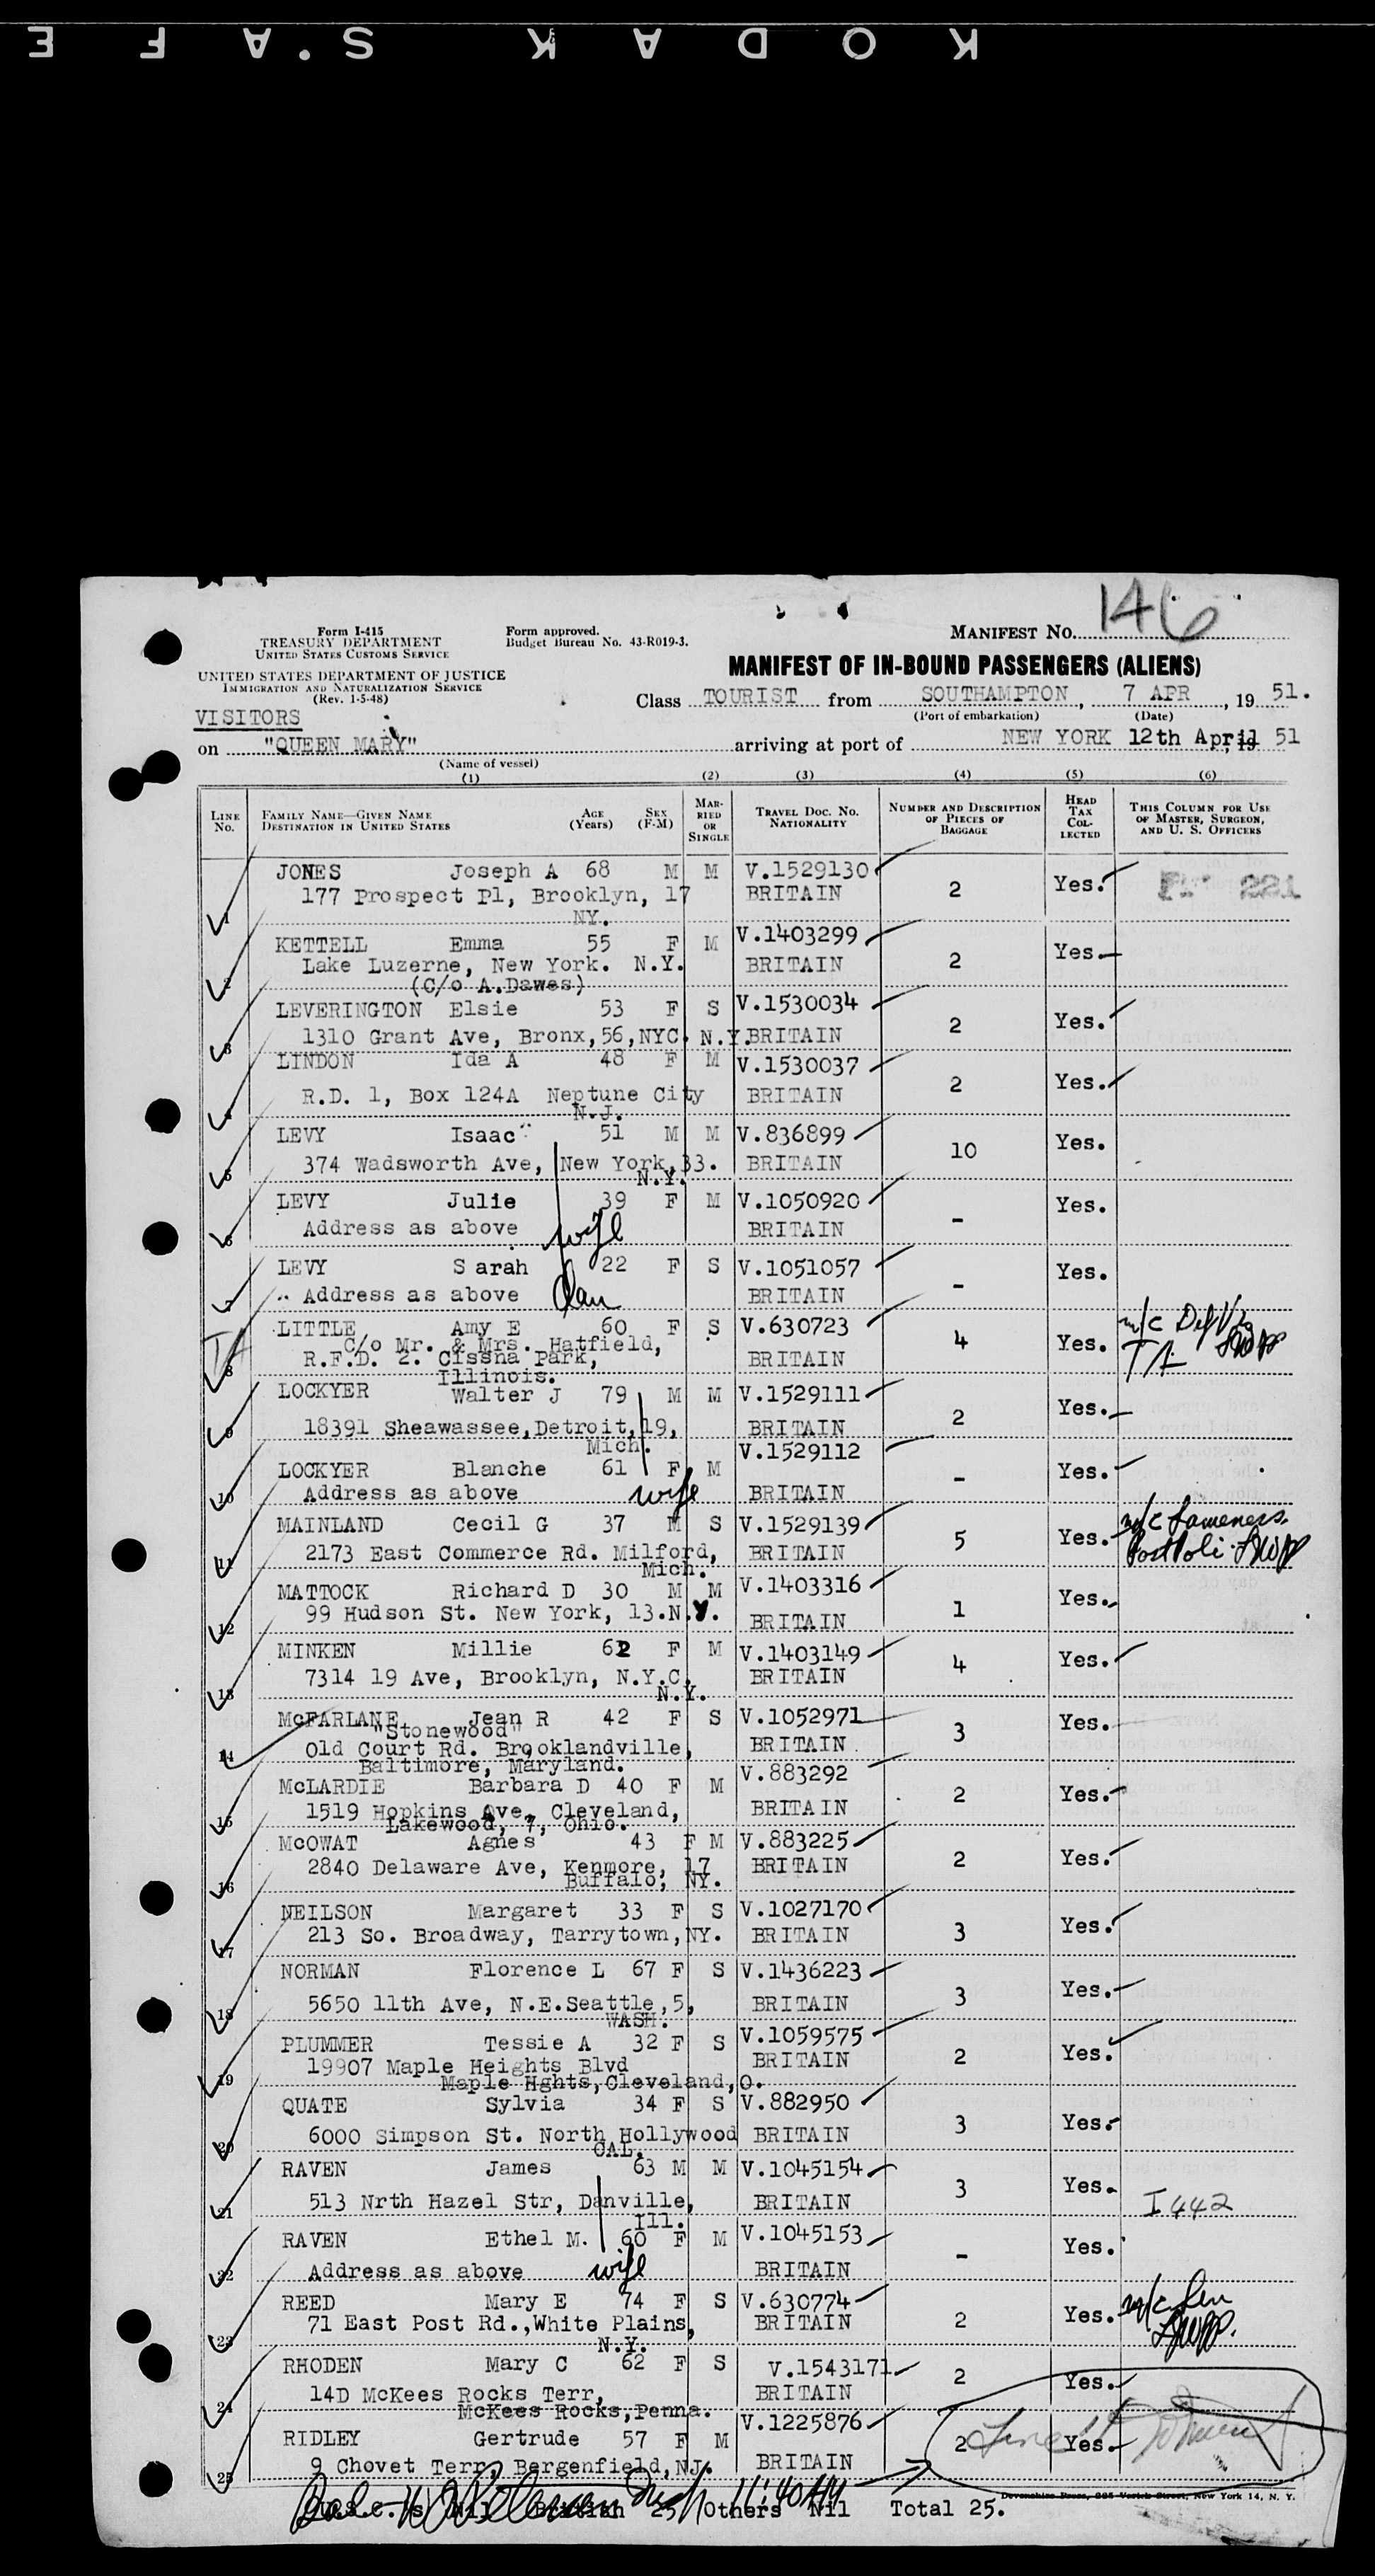 KODAK S.A F E
146
Form I-415
TREASURY DEPARTMENT
UNITED STATES CUSTOMS SERVICE
Form approved.
Budget Bureau No. 43-R019-3.
MANIFEST No.
UNITED STATES DEPARTMENT OF JUSTICE
IMMIGRATION AND NATURALIZATION SERVICE
(Rev. 1-5-48)
MANIFEST OF IN-BOUND PASSENGERS (ALIENS)
Class TOURIST from SOUTHAMPTON, 7 APR, 19 51.
(Port of embarkation) (Date)
VISITORS
on "QUEEN MARY" arriving at port of NEW YORK 12th April 19 51
(Name of vessel)
(1) (2) (3) (4) (5) (6)
LINE No. FAMILY NAME—GIVEN NAME DESTINATION IN UNITED STATES AGE (Years) SEX (F-M) MARRIED OR SINGLE TRAVEL DOC. NO. NATIONALITY NUMBER AND DESCRIPTION OF PIECES OF BAGGAGE HEAD TAX COLLECTED THIS COLUMN FOR USE OF MASTER, SURGEON, AND U. S. OFFICERS
JONES Joseph A 68 M M V.1529130 2 Yes. 221
1 177 Prospect Pl, Brooklyn, 17 BRITAIN
NY.
KETTELL Emma 55 F M V.1403299 2 Yes
2 Lake Luzerne, New York. N.Y. BRITAIN
(C/o A.Dawes)
LEVERINGTON Elsie 53 F S V.1530034 2 Yes.
3 1310 Grant Ave, Bronx,56,NYC. N.Y. BRITAIN
LINDON Ida A 48 F M V.1530037 2 Yes.
4 R.D. 1, Box 124A Neptune City BRITAIN
N.J.
LEVY Isaac 51 M M V.836899 10 Yes.
5 374 Wadsworth Ave, New York,33. BRITAIN
N.Y.
LEVY Julie 39 F M V.1050920 - Yes.
6 Address as above wife BRITAIN
LEVY Sarah 22 F S V.1051057 - Yes.
7 Address as above Dau BRITAIN
LITTLE Amy E 60 F S V.630723 4 Yes. m/c
C/o Mr. & Mrs. Hatfield,
8 R.F.D. 2. Cissna Park, BRITAIN
Illinois.
LOCKYER Walter J 79 M M V.1529111 2 Yes.
9 18391 Sheawassee,Detroit,19, BRITAIN
Mich.
LOCKYER Blanche 61 F M V.1529112 - Yes.
10 Address as above wife BRITAIN
MAINLAND Cecil G 37 M S V.1529139 5 Yes. m/c
11 2173 East Commerce Rd. Milford, BRITAIN
Mich.
MATTOCK Richard D 30 M M V.1403316 1 Yes.
12 99 Hudson St. New York, 13.N.Y. BRITAIN
MINKEN Millie 62 F M V.1403149 4 Yes.
13 7314 19 Ave, Brooklyn, N.Y.C. BRITAIN
N.Y.
McFARLANE Jean R 42 F S V.1052971 3 Yes.
"Stonewood"
14 Old Court Rd. Brooklandville, BRITAIN
Baltimore, Maryland.
McLARDIE Barbara D 40 F M V.883292 2 Yes.
15 1519 Hopkins Ave, Cleveland, BRITAIN
Lakewood, 7, Ohio.
McOWAT Agnes 43 F M V.883225 2 Yes.
16 2840 Delaware Ave, Kenmore, 17 BRITAIN
Buffalo, NY.
NEILSON Margaret 33 F S V.1027170 3 Yes.
17 213 So. Broadway, Tarrytown,NY. BRITAIN
NORMAN Florence L 67 F S V.1436223 3 Yes.
18 5650 11th Ave, N.E.Seattle,5, BRITAIN
WASH.
PLUMMER Tessie A 32 F S V.1059575 2 Yes.
19 19907 Maple Heights Blvd BRITAIN
Maple Hghts,Cleveland,O.
QUATE Sylvia 34 F S V.882950 3 Yes.
20 6000 Simpson St. North Hollywood BRITAIN
CAL.
RAVEN James 63 M M V.1045154 3 Yes. I 442
21 513 Nrth Hazel Str, Danville, BRITAIN
Ill.
RAVEN Ethel M. 60 F M V.1045153 - Yes.
22 Address as above wife BRITAIN
REED Mary E 74 F S V.630774 2 Yes. m/c
23 71 East Post Rd.,White Plains, BRITAIN
N.Y.
RHODEN Mary C 62 F S V.1543171 2 Yes.
24 14D McKees Rocks Terr, BRITAIN
McKees Rocks,Penna.
RIDLEY Gertrude 57 F M V.1225876 2 Yes.
25 9 Chovet Terr, Bergenfield,NJ. BRITAIN
Devonshire Press, 225 Varick Street, New York 14, N. Y.
11:40 AM
Nil British 25 Others Nil Total 25.